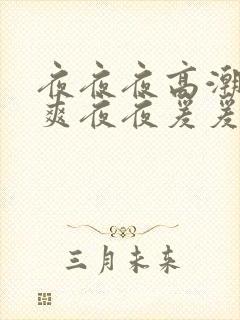 夜夜夜高潮
爽夜夜爰爰
三月未来